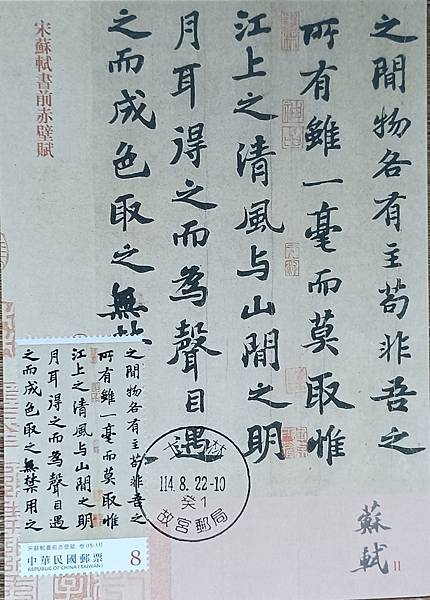 宋蘇軾書前赤壁賦
之間物各有主茍非吾之
所有雖一毫而莫取惟
江上之清風与山間之明
月耳得之而為聲目遇
之而成色取之無禁
之間物各有主茍非吾之
所有雖一毫而莫取惟
江上之清風与山間之明
月耳得之而為聲目遇
之而成色取之無禁用之
宋蘇軾書前赤壁賦
(15-11)
中華民國郵票
REPUBLIC OF CHINA (TAIWAN)
8
114.8.22-10
癸1
故宮郵局
蘇軾
11